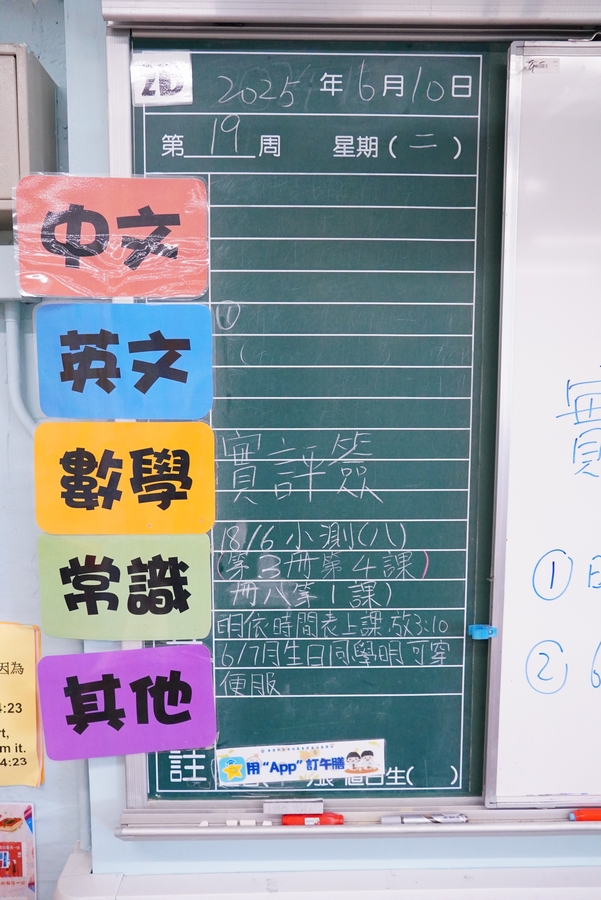 2D 2025 年 6 月 10 日
第 19 周 星期(二)
中文
①
英文
數學
實評簽
18/6 小測(八)
(第3冊第4課)
常識
冊八第1課)
明依時間表上課,放3:10
6/7月生日同學明可穿
便服
其他
註
用“App”訂午膳
值日生( )
因為
4:23
rt,
m it.
4:23
實
①
②